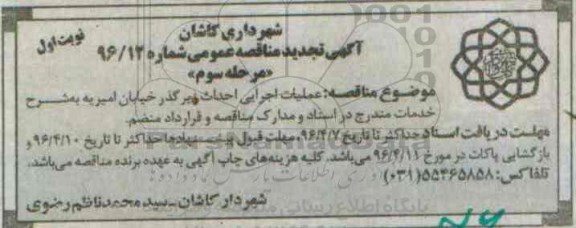 شهرداری کاشان
نوبت اول
آگهی تجدید مناقصه عمومی شماره ۹۶/۱۲
«مرحله سوم»
موضوع مناقصه: عملیات اجرایی احداث زیر گذر خیابان امیریه به شرح
خدمات مندرج در اسناد و مدارک مناقصه و قرارداد منضم.
مهلت دریافت اسناد حداکثر تا تاریخ ۹۶/۴/۷، مهلت قبول پیشنهادها حداکثر تا تاریخ ۹۶/۴/۱۰ و
بازگشایی پاکات در مورخ ۹۶/۴/۱۱ می‌باشد. کلیه هزینه‌های چاپ آگهی به عهده برنده مناقصه می‌باشد.
تلفاکس: ۵۵۴۶۵۸۵۸ (۰۳۱)
شهردار کاشان - سید محمد ناظم رضوی